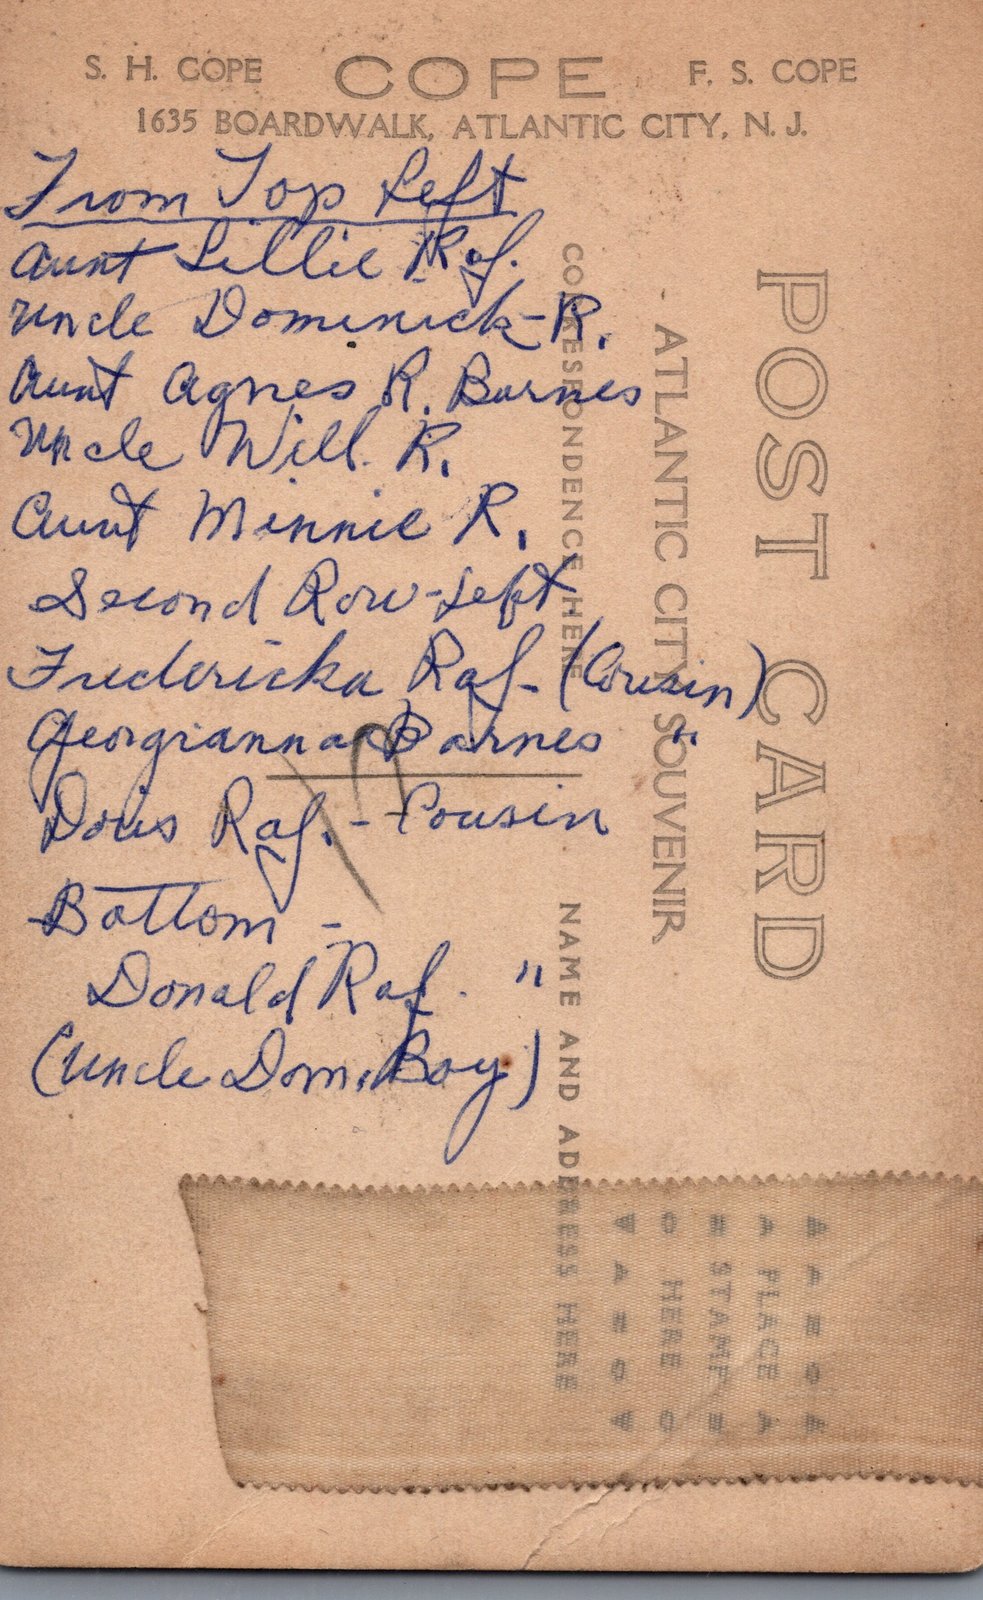 S. H. COPE COPE F. S. COPE
1635 BOARDWALK, ATLANTIC CITY, N. J.
From Top Left
Aunt Lillie Raf.
Uncle Dominick-R.
Aunt Agnes R. Barnes
Uncle Will. R.
Aunt Minnie R.
Second Row-Left
Fredericka Raf- (Cousin)
Georgianna Barnes "
Doris Raf. - Cousin
Bottom -
Donald Raf. "
(Uncle Dom. Boy)
POST CARD
ATLANTIC CITY SOUVENIR
CORRESPONDENCE HERE
NAME AND ADDRESS HERE
PLACE
STAMP
HERE